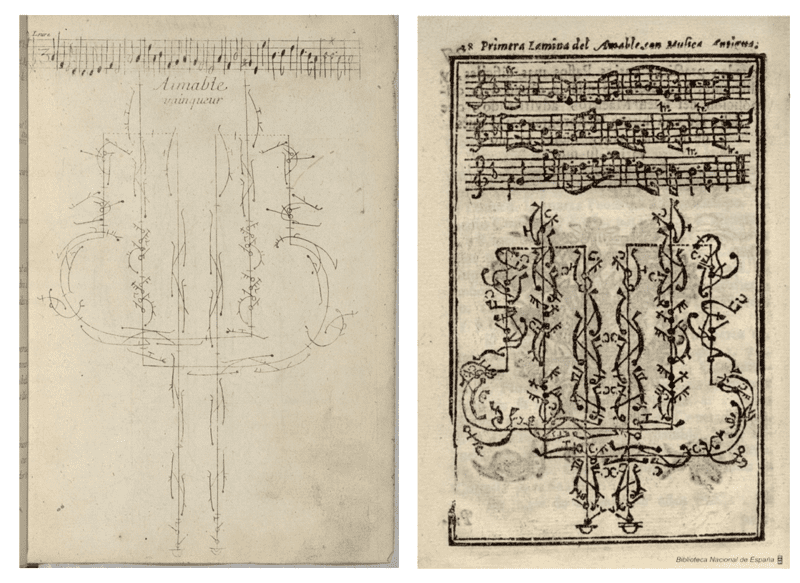 Loure
2
Aimable
vainqueur
28 Primera Lamina del Amable, con Musica Antigua;
tr.
tr. tr.
tr. tr.
Biblioteca Nacional de España